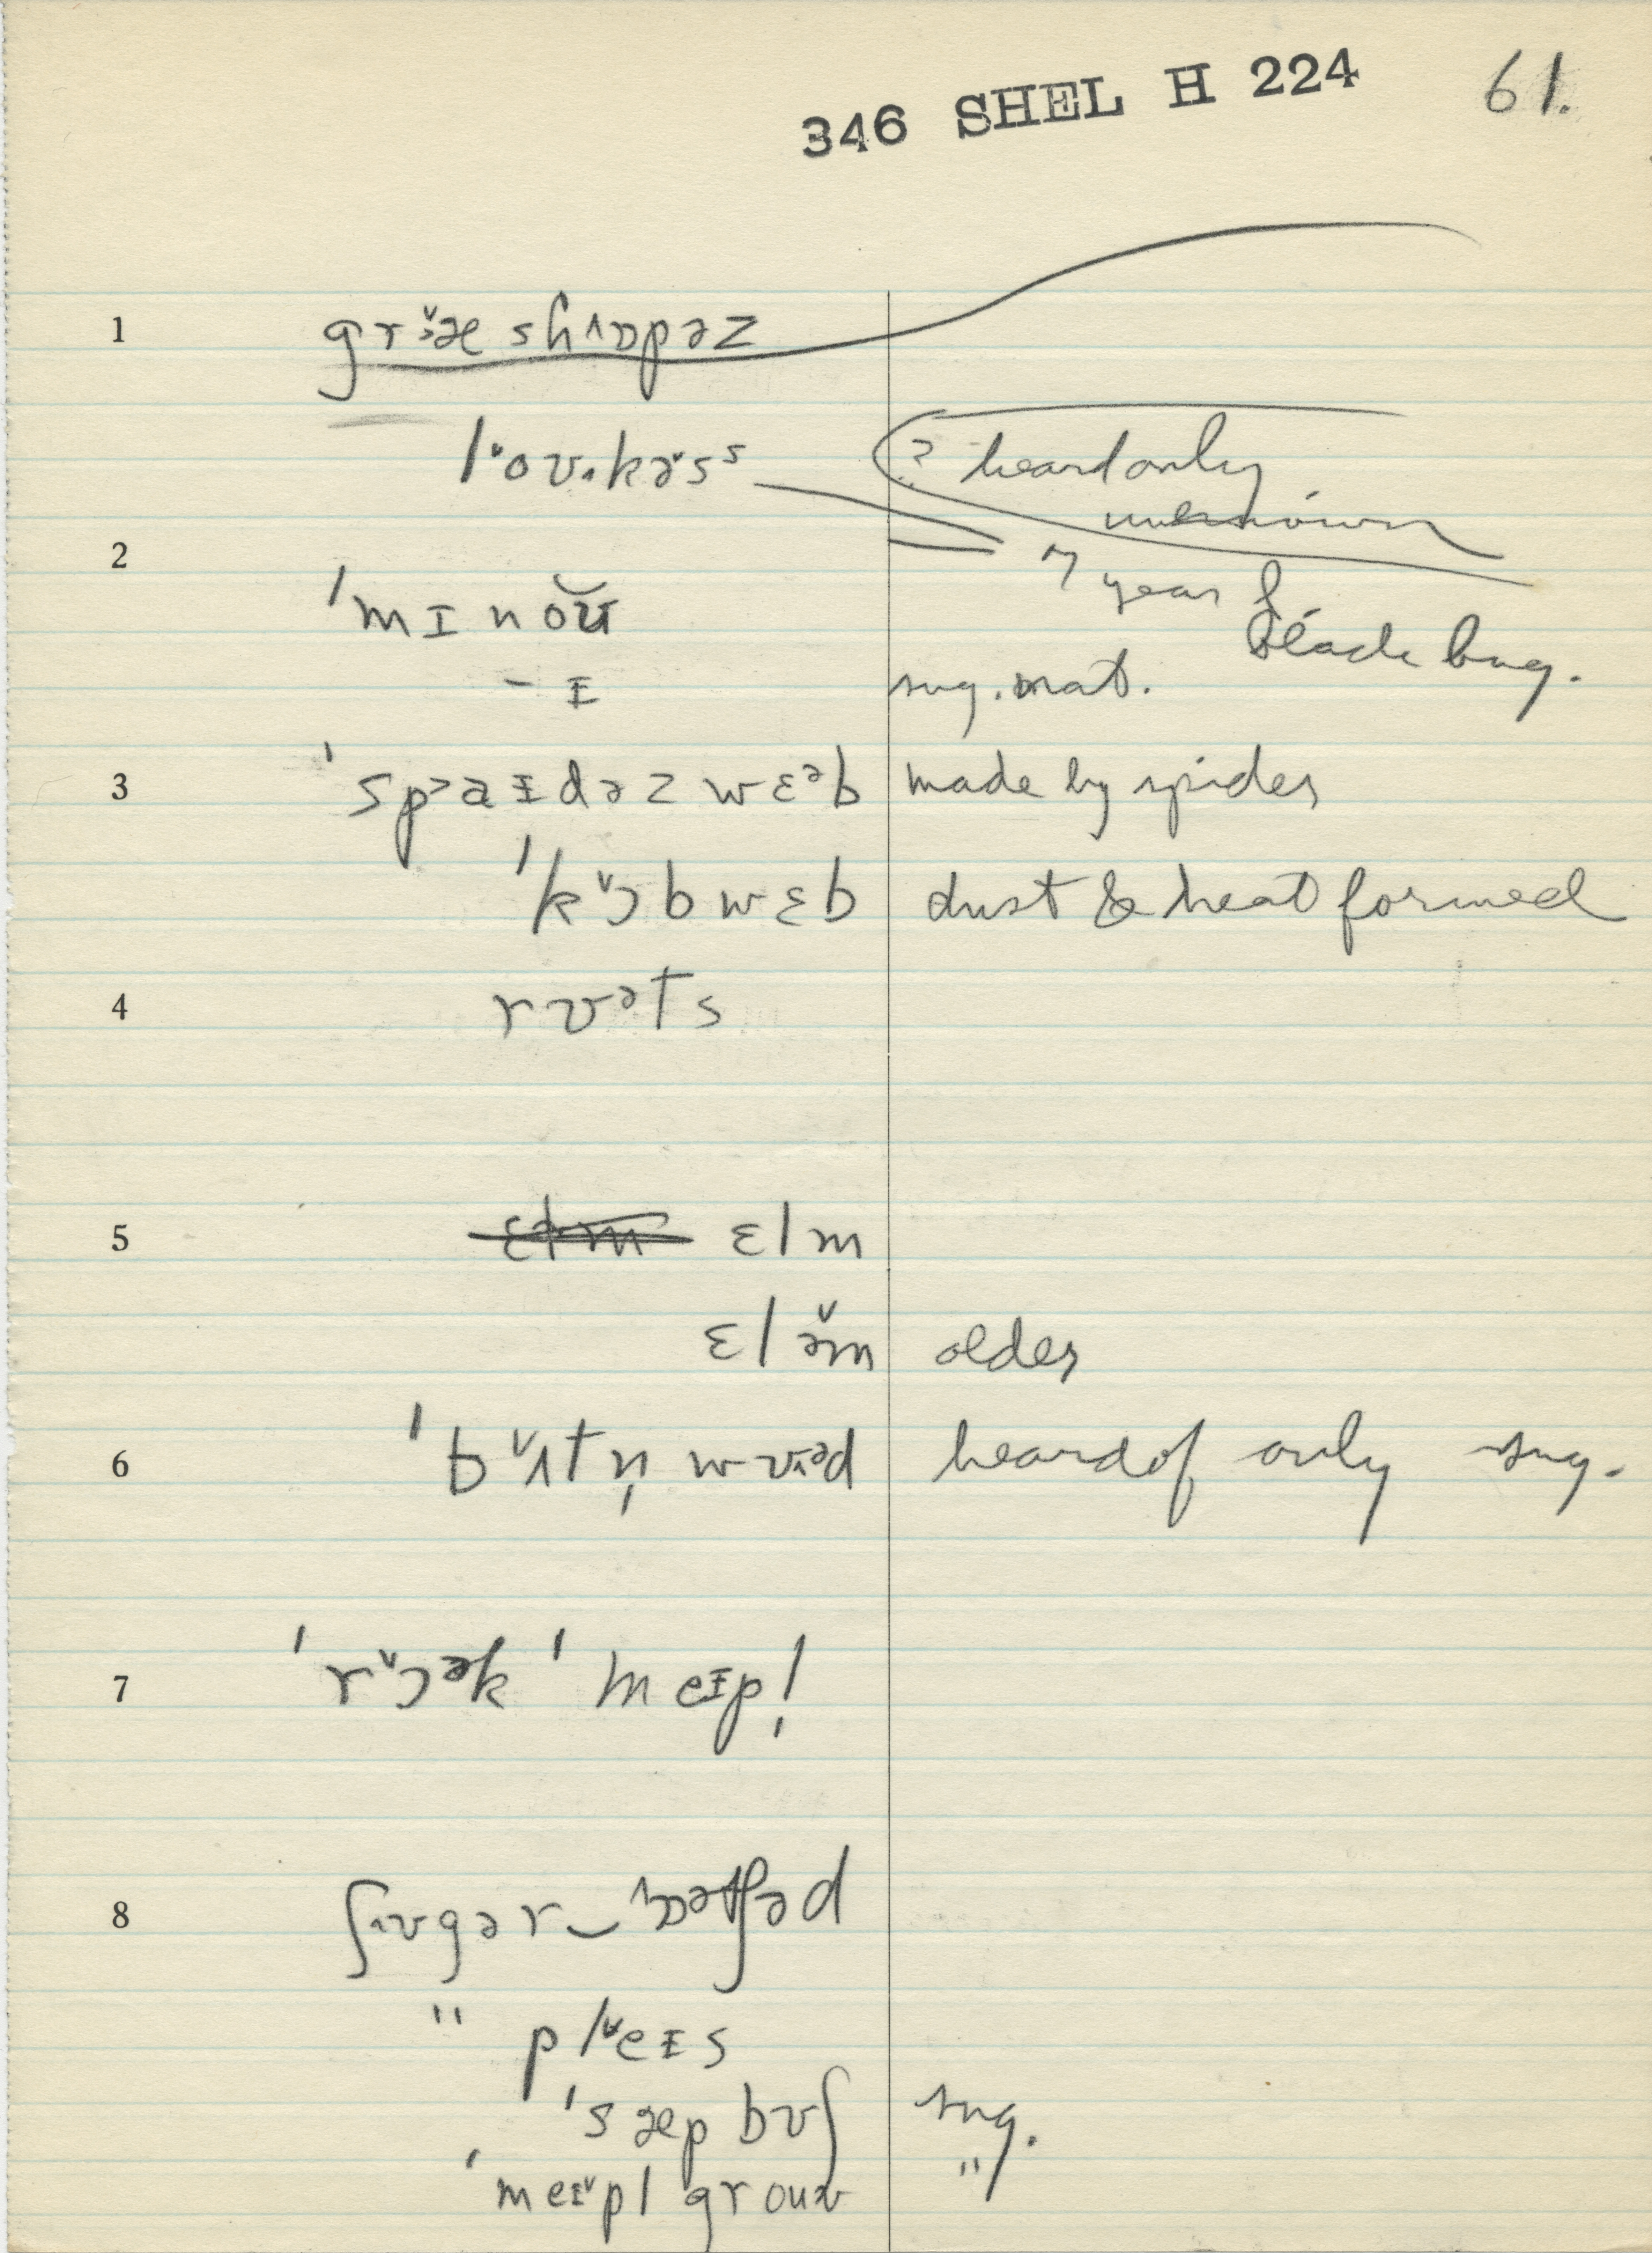 346 SHEL H 224 61.
1 græshɒpəz
ˈloʊkəsˢ ? heard only
unknown
2 7 year
ˈmɪnoʊ black bug.
– ɪ sug. nat.
3 ˈspaɪdəzwɛᵊb made by spiders
ˈkɔbwɛb dust & heat formed
4 rʊᵊts
5 ɛlm ɛlm
ɛləm older
6 ˈbʌtn̩wʊəd heard of only sug.
7 ˈrɔək ˈmeɪpl̩
8 ʃʊgər‿ɒətʃəd
" pleɪs
ˈsæp bʊʃ sug.
ˈmeɪpl groʊv "